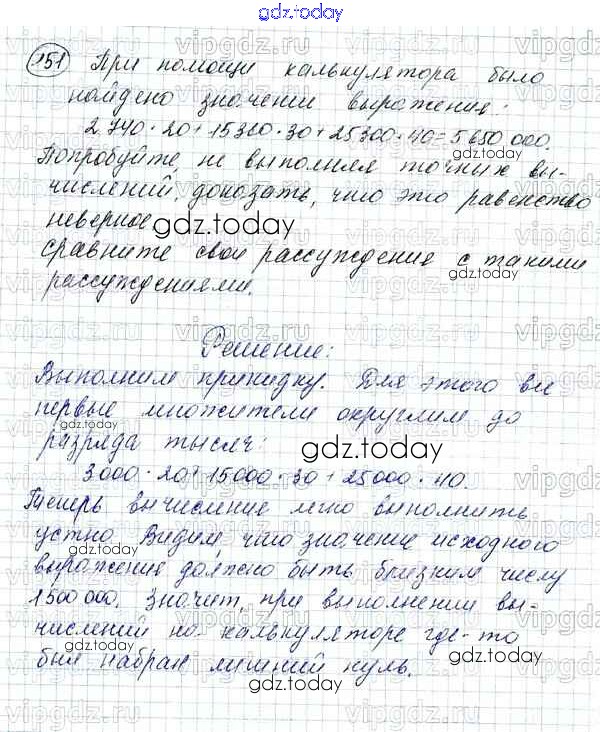 gdz.today
151 При помощи калькулятора было
найдено значении выражения:
2 740 · 20 + 15 360 · 30 + 25 300 · 40 = 5 650 000.
gdz.today
Попробуйте не выполняя точных вы-
числений, доказать, что это равенство
неверное
gdz.today
Сравните свои рассуждения с такими
gdz.today
рассуждениями.
Решение:
Выполним прикидку. Для этого все
первые множители округлим до
разряда тысяч:
gdz.today
3000 · 20 + 15000 · 30 + 25000 · 40.
Теперь вычисление легко выполнить
устно. Видим, что значение исходного
gdz.today
выражение должно быть близким числу
1500 000. Значит, при выполнении вы-
числений на калькуляторе где-то
gdz.today
был набран лишний нуль.
gdz.today